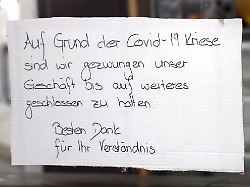 Auf Grund der Covid-19 Kriese
sind wir gezwungen unser
Geschäft bis auf weiteres
geschlossen zu halten.
Besten Dank
für Ihr Verständnis